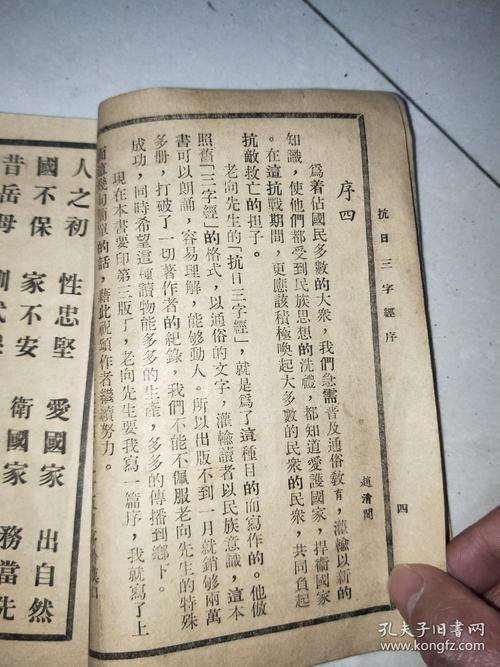 抗日三字經序
四
序四
趙清閣
爲着佔國民多數的大衆，我們急需普及通俗教育，灌輸以新的
知識，使他們都受到民族思想的洗禮，都知道愛護國家，捍衛國家
。在這抗戰期間，更應該積極喚起大多數的民衆的民衆，共同負起
抗敵救亡的担子。
老向先生的「抗日三字經」，就是爲了這種目的而寫作的。他倣
照舊「三字經」的格式，以通俗的文字，灌輸讀者以民族意識，這本
書可以朗誦，容易理解，能够動人。所以出版不到一月就銷够兩萬
多册，打破了一切著作者的紀錄，我們不能不佩服老向先生的特殊
成功，同時希望這種讀物能多多的生產，多多的傳播到鄉下。
現在本書要印第三版了，老向先生要我寫一篇序，我就寫了上
面這幾句簡單的話，藉此祝頌作者繼續努力。
人之初 性忠堅 愛國家 出自然
國不保 家不安 衛國家 務當先
昔岳母
孔夫子旧书网
kongfz.com